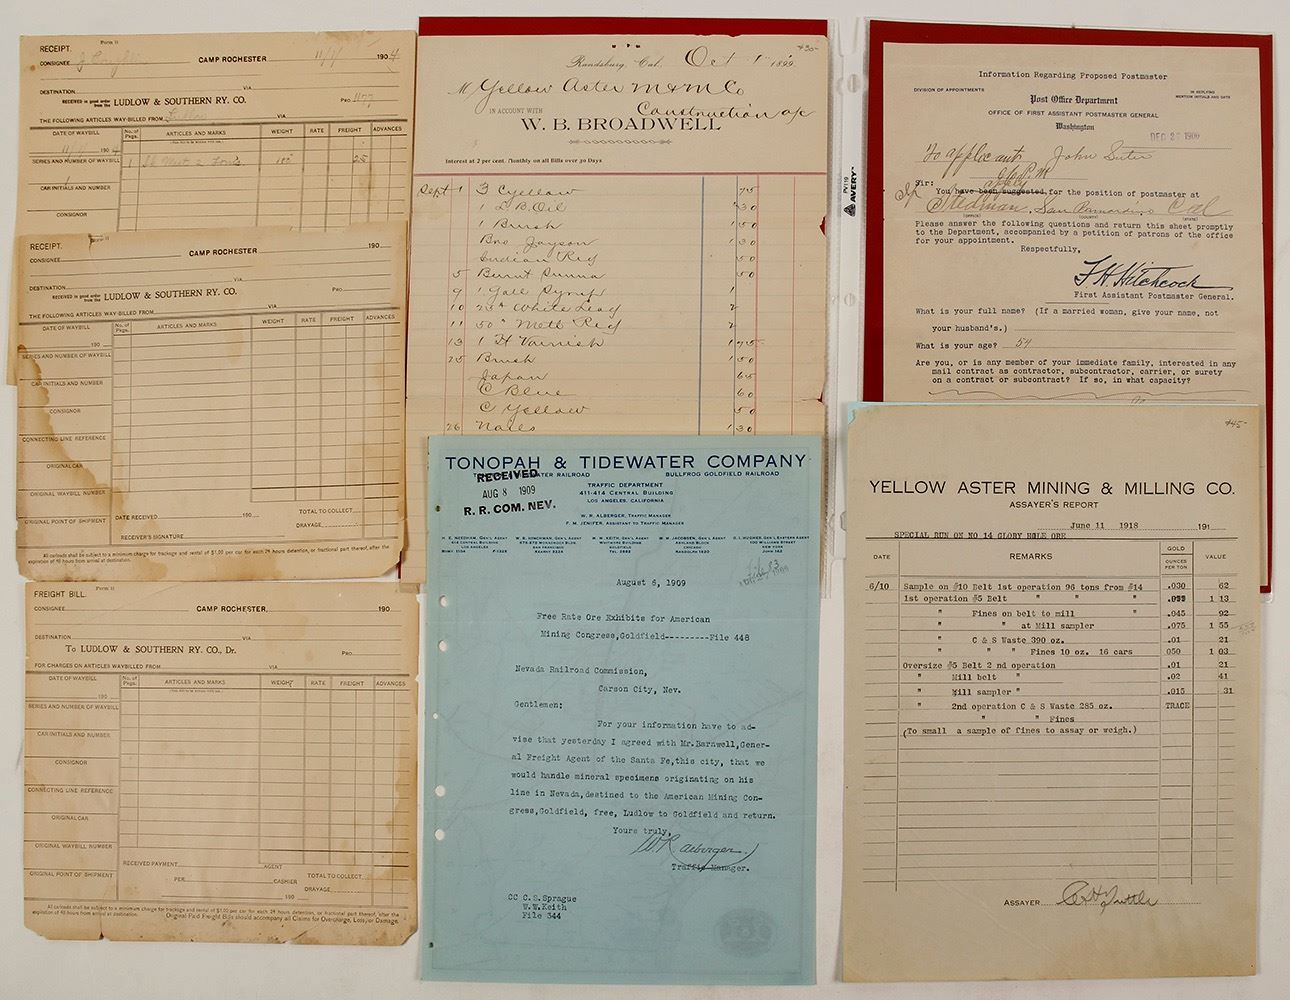 RECEIPT.
Form 11
CONSIGNEE
CAMP ROCHESTER 11/7/ 1904
DESTINATION VIA
RECEIVED in good order from the LUDLOW & SOUTHERN RY. CO. PRO 1177
THE FOLLOWING ARTICLES WAY-BILLED FROM Ludlow VIA
DATE OF WAYBILL No. of Pkgs. ARTICLES AND MARKS WEIGHT RATE FREIGHT ADVANCES
11/7/ 1904
SERIES AND NUMBER OF WAYBILL 1 100 25
CAR INITIALS AND NUMBER
RECEIPT.
Form 11
CONSIGNEE CAMP ROCHESTER 190
DESTINATION VIA
RECEIVED in good order from the LUDLOW & SOUTHERN RY. CO. PRO
THE FOLLOWING ARTICLES WAY-BILLED FROM VIA
DATE OF WAYBILL No. of Pkgs. ARTICLES AND MARKS WEIGHT RATE FREIGHT ADVANCES
190
SERIES AND NUMBER OF WAYBILL
CAR INITIALS AND NUMBER
CONSIGNOR
CONNECTING LINE REFERENCE
ORIGINAL CAR
ORIGINAL WAYBILL NUMBER
ORIGINAL POINT OF SHIPMENT DATE RECEIVED 190 TOTAL TO COLLECT
DRAYAGE
RECEIVER'S SIGNATURE
All carloads shall be subject to a minimum charge for trackage and rental of $1.00 per car for each 24 hours detention, or fractional part thereof, after the
expiration of 48 hours from arrival at destination.
FREIGHT BILL.
Form 11
CONSIGNEE CAMP ROCHESTER, 190
DESTINATION VIA
To LUDLOW & SOUTHERN RY. CO., Dr. PRO
FOR CHARGES ON ARTICLES WAYBILLED FROM VIA
DATE OF WAYBILL No. of Pkgs. ARTICLES AND MARKS WEIGHT RATE FREIGHT ADVANCES
190
SERIES AND NUMBER OF WAYBILL
CAR INITIALS AND NUMBER
CONSIGNOR
CONNECTING LINE REFERENCE
ORIGINAL CAR
ORIGINAL WAYBILL NUMBER
ORIGINAL POINT OF SHIPMENT
RECEIVED PAYMENT, AGENT
PER CASHIER TOTAL TO COLLECT
DRAYAGE
190
All carloads shall be subject to a minimum charge for trackage and rental of $1.00 per car for each 24 hours detention, or fractional part thereof, after the
expiration of 48 hours from arrival at destination. Original Paid Freight Bills should accompany all Claims for Overcharge, Loss, or Damage.
$30-
Randsburg, Cal. Oct 1 1899
M Yellow Aster M & M Co
IN ACCOUNT WITH Construction a/c
W. B. BROADWELL
Interest at 2 per cent. Monthly on all Bills over 30 Days
Sept 1 3 C yellow 75
1 L B. Oil 30
1 Brush 1 50
30
Indian Red 50
5 Burnt 50
9 1 Gall 1
10 25# White Lead 2
11 50 " Red 2
13 1 H Varnish 1 75
25 Brush 1 50
Japan 65
C Blue 60
C Yellow 50
26 Nails 1 30
AVERY
PV119
TONOPAH & TIDEWATER COMPANY
TONOPAH & TIDEWATER RAILROAD BULLFROG GOLDFIELD RAILROAD
RECEIVED
AUG 8 1909
R. R. COM. NEV.
TRAFFIC DEPARTMENT
411-414 CENTRAL BUILDING
LOS ANGELES, CALIFORNIA
W. R. ALBERGER, TRAFFIC MANAGER
F. M. JENIFER, ASSISTANT TO TRAFFIC MANAGER
August 6, 1909
Free Rate Ore Exhibits for American
Mining Congress,Goldfield---------File 448
Nevada Railroad Commission,
Carson City, Nev.
Gentlemen:
For your information have to ad-
vise that yesterday I agreed with Mr.Barnwell,Gener-
al Freight Agent of the Santa Fe,this city, that we
would handle mineral specimens originating on his
line in Nevada,destined to the American Mining Con-
gress,Goldfield, free, Ludlow to Goldfield and return.
Yours truly,
W R Alberger
Traffic Manager.
CC C.S.Sprague
W.W.Keith
File 344
Information Regarding Proposed Postmaster
DIVISION OF APPOINTMENTS
IN REPLYING MENTION INITIALS AND DATE
Post Office Department
OFFICE OF FIRST ASSISTANT POSTMASTER GENERAL
Washington
DEC 26 1906
To applicant John Suter
Sir:
You have been suggested for the position of postmaster at
Stedman, San Bernardino Cal
(OFFICE) (COUNTY) (STATE)
Please answer the following questions and return this sheet promptly
to the Department, accompanied by a petition of patrons of the office
for your appointment.
Respectfully,
F. H. Hitchcock
First Assistant Postmaster General.
What is your full name? (If a married woman, give your name, not
your husband's.)
What is your age? 54
Are you, or is any member of your immediate family, interested in any
mail contract as contractor, subcontractor, carrier, or surety
on a contract or subcontract? If so, in what capacity?
$45-
YELLOW ASTER MINING & MILLING CO.
ASSAYER'S REPORT
June 11 1918 191
SPECIAL RUN ON NO 14 GLORY HOLE ORE
DATE REMARKS GOLD OUNCES PER TON VALUE
6/10 Sample on #10 Belt 1st operation 96 tons from #14 .030 62
1st operation #5 Belt " " " 1 13
" Fines on belt to mill .045 92
" " at Mill sampler .075 1 55
" C & S Waste 390 oz. .01 21
" " " Fines 10 oz. 16 cars 050 1 03
Oversize #5 Belt 2 nd operation .01 21
" Mill belt " .02 41
" Mill sampler " .015 31
" 2nd operation C & S Waste 285 oz. TRACE
" " Fines
(To small a sample of fines to assay or weigh.)
ASSAYER